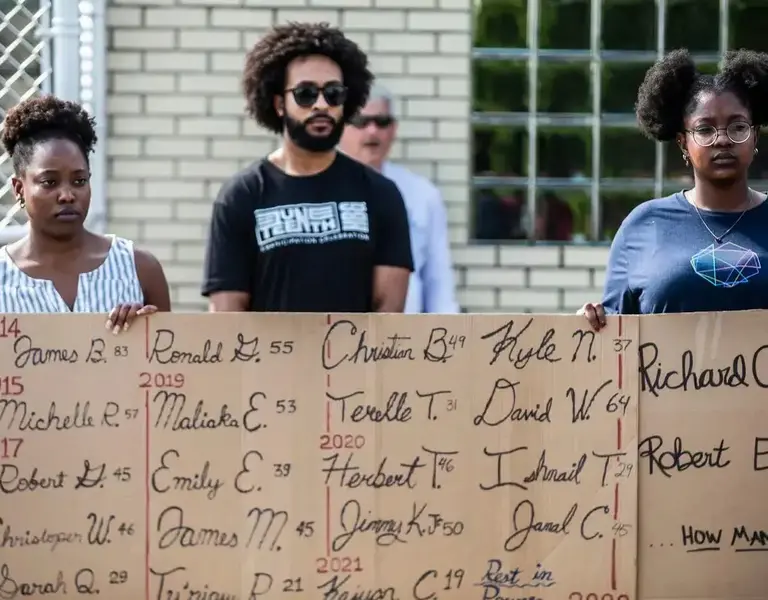 JUNETEENTH
COMMUNICATION CELEBRATION
14
James B. 83
15
Michelle R. 57
17
Robert G. 45
Christoper W. 46
Sarah Q. 29
Ronald G. 55
2019
Maliaka E. 53
Emily E. 39
James M. 45
P. 21
Christian B. 49
Terelle T. 31
2020
Herbert T. 46
Jimmy K. Jr 50
2021
C. 19
Kyle N. 37
David W. 64
Ishmail T. 29
Jamal C. 45
Rest in
Power
Richard C
Robert E
...HOW MAN